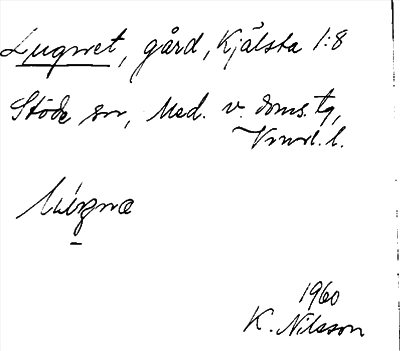 Lugnet, gård, Kjälsta 1:8
Stöde sn, Med. v. doms. tg,
Vrnrl. l.
1960
K. Nilsson